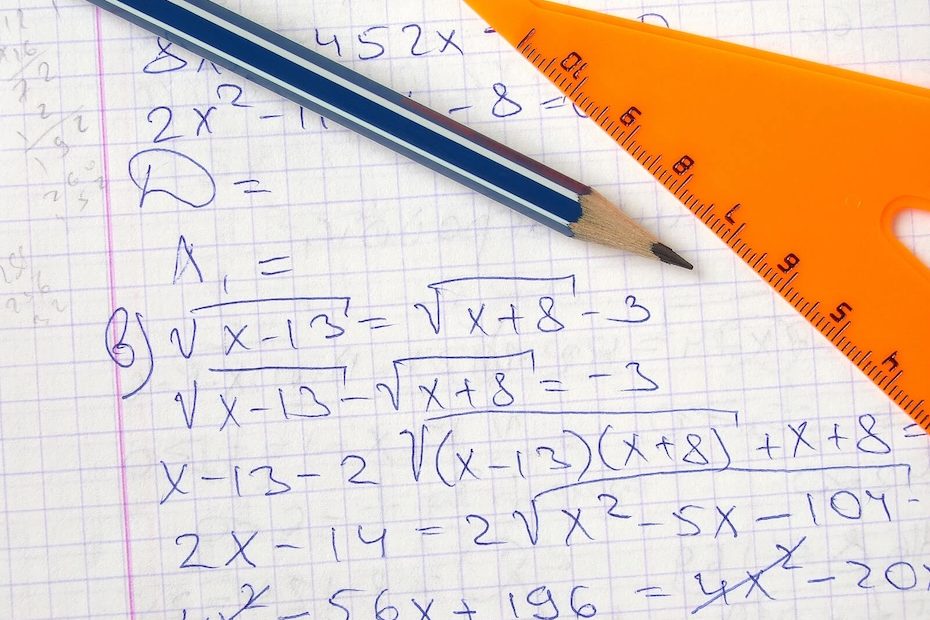 8x 452x -
2x² - - 8 =
D =
x₁ =
в) √(x-13) = √(x+8) - 3
√(x-13) - √(x+8) = -3
x-13-2√((x-13)(x+8)) + x+8 =
2x-14 = 2√(x²-5x-104)
² - 56x + 196 = 4x² - 20x
10 9 8 7 6 5 4